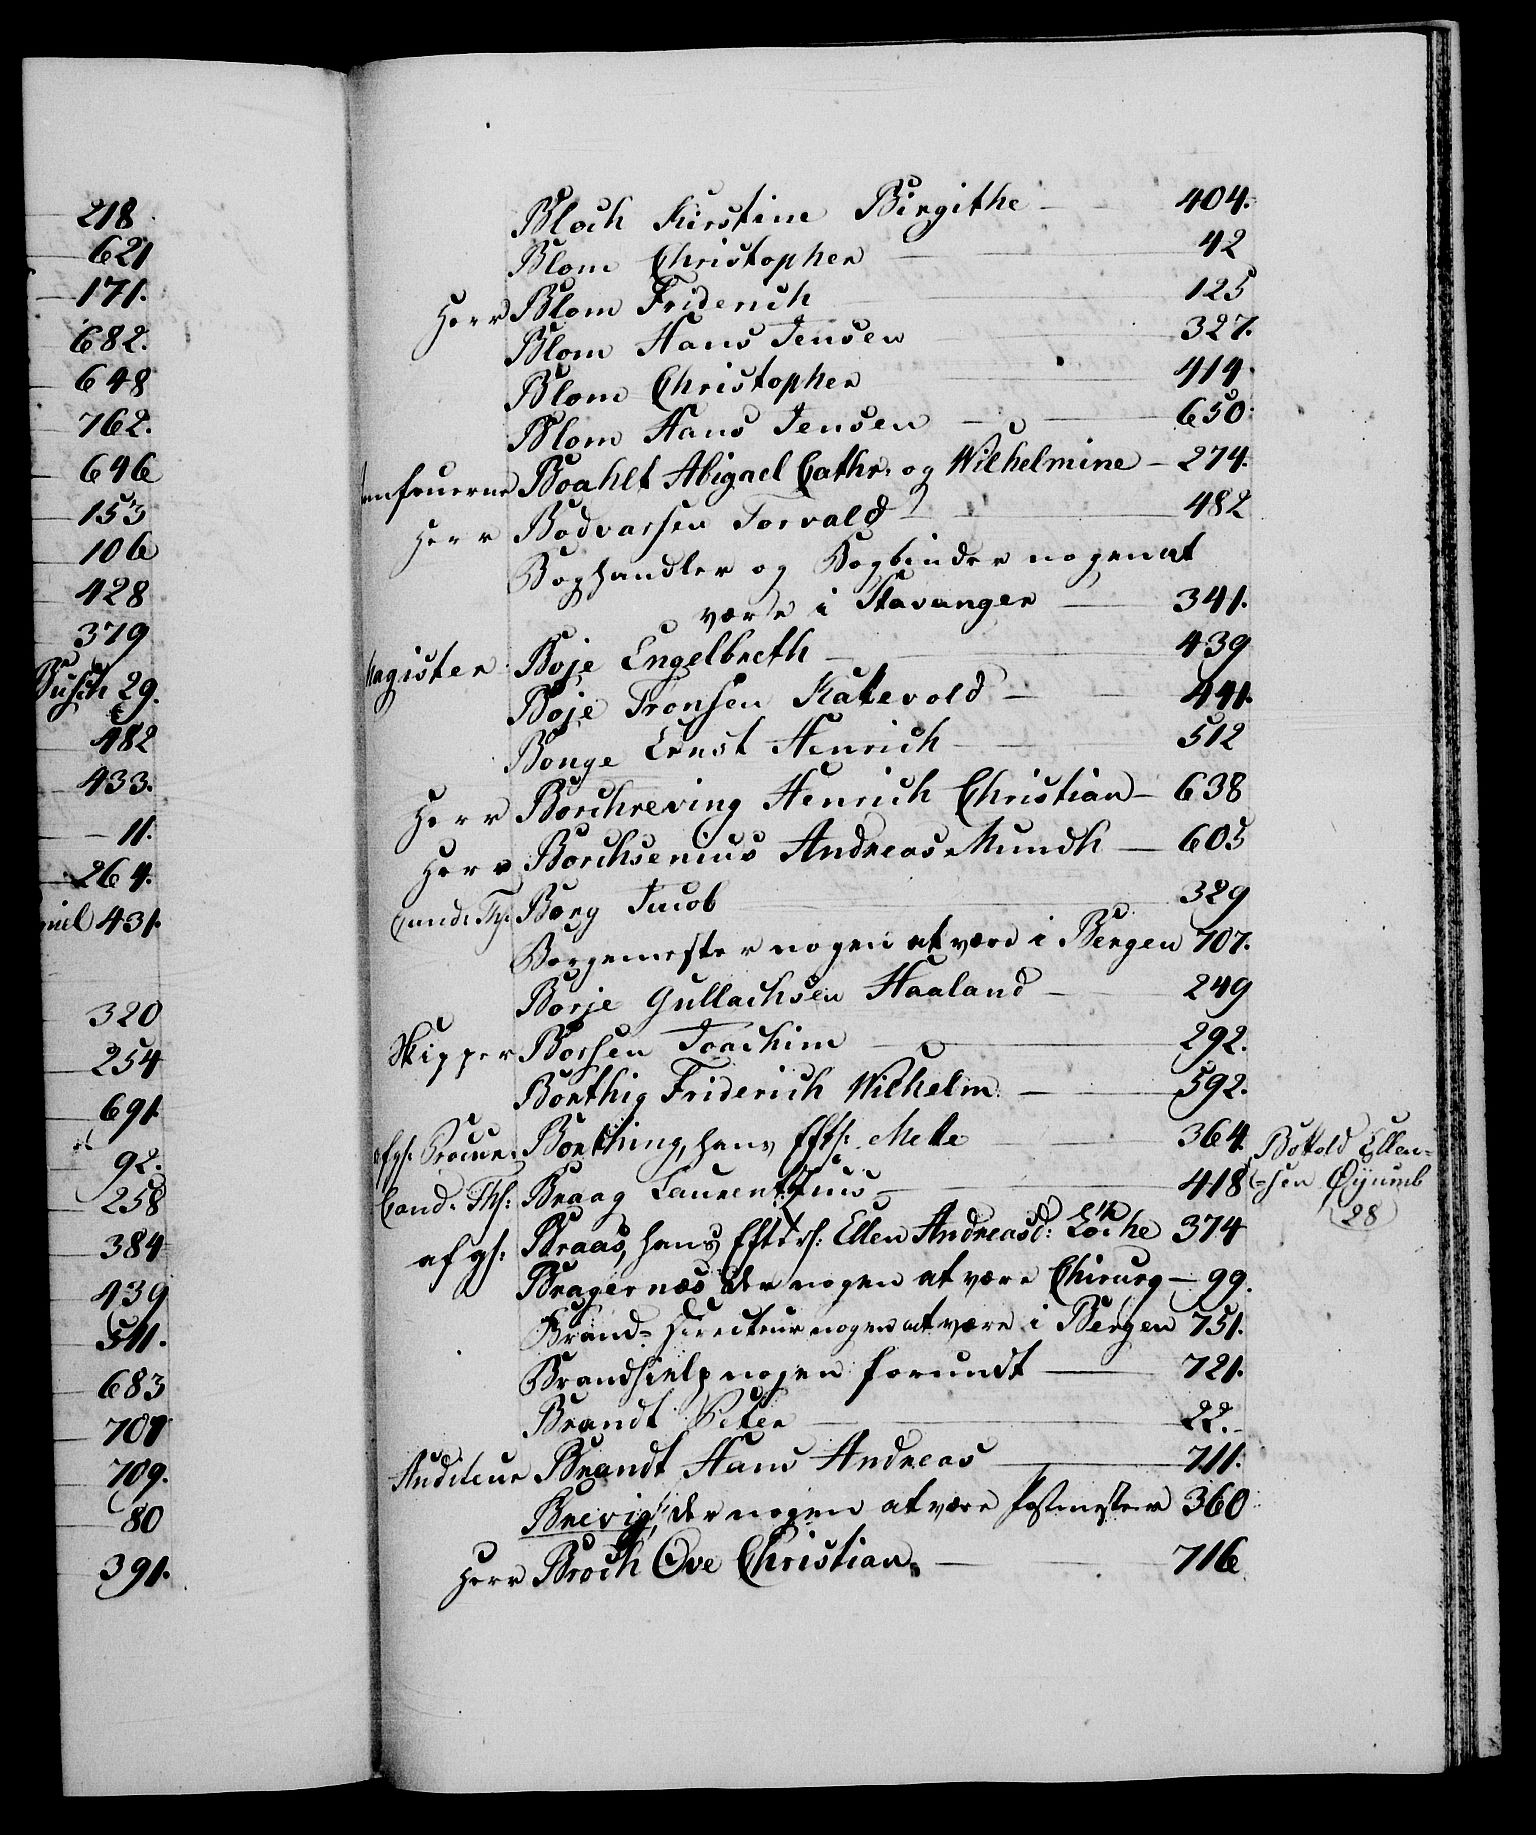 218
621
171.
682.
648
762.
646
153
106
428
379
Busch 29.
482
433.
11.
264.
431.
320
254
691.
92.
258
384
439
511.
683
707
709.
80
391.
Bloch Kirstine Birgithe - 404.
Blom Christopher 42
Herr Blom Friderich 125
Blom Hans Jensen 327.
Blom Christopher 414.
Blom Hans Jensen - 650.
Jomfruerne Boahlt Abigael Cathr: og Wilhelmine - 274.
Herr Bodvarsen Torvald 482
Boghandler og Bogbinder nogen at
være i Stavanger 341.
Magister Boje Engelbreth 439
Boje Tronsen Katevold 441.
Bonge Ernst Henrich 512
Herr Borchreving Henrich Christian - 638
Herr Borchsenius Andreas Mundh - 605
Cand: Th: Borg Jacob 329
Borgemester nogen at være i Bergen 707.
Borje Gullachsen Haaland 249
Skipper Borsen Joachim 292.
Borthig Friderich Wilhelm 592.
afg: Procur: Borthing, hans Eftr: Mete 364.
Botold Ellen=
=sen Øijumb
28
Cand. Th: Braag Laurentius 418
afg: Braas, hans Efterl: Ellen Andreasd: 374
Bragernæs der nogen at være Chirurg - 99.
Brand=Directeur nogen at være i Bergen 751.
Brandhielp nogen forundt 721.
Brandt Peter 22.
Auditeur Brandt Hans Andreas 711.
Brevig, der nogen at være Postmester 360
Herr Broch Ove Christian. 716